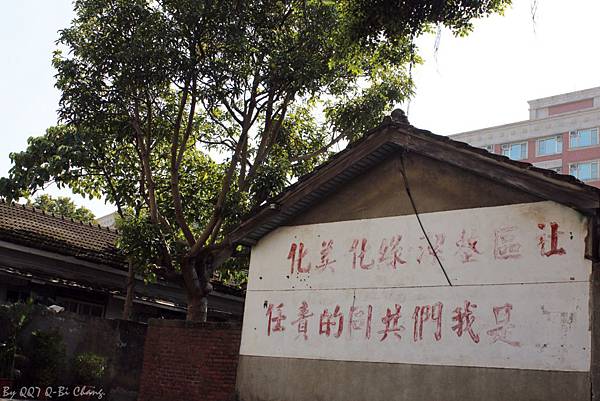 让區整潔綠化美化
是我們共同的責任
By QQ7 Q-Bi Chang.